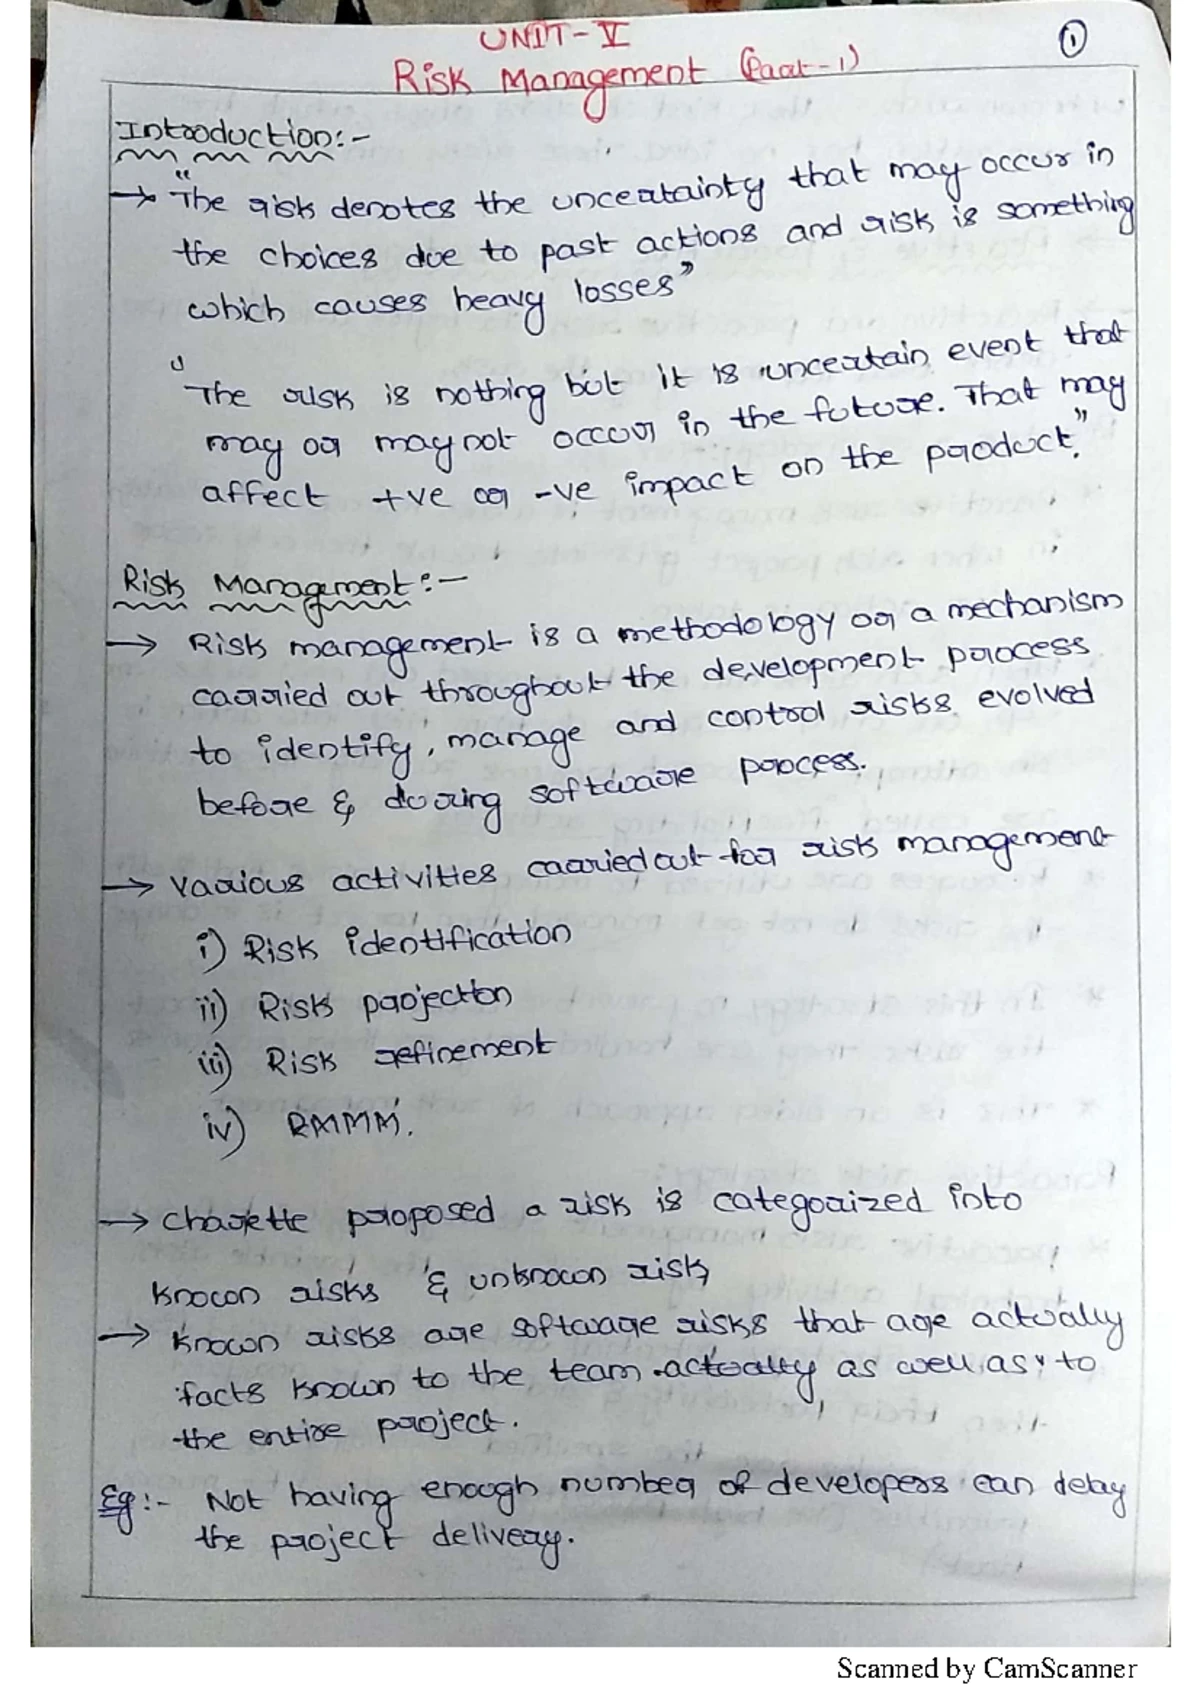 UNIT-V
①
Risk Management (Part-1)
Introduction:-
→ "The risk denotes the uncertainty that may occur in
the choices due to past actions and risk is something
which causes heavy losses"
"The risk is nothing but it is uncertain event that
may or may not occur in the future. That may
affect +ve or -ve impact on the product."
Risk Management:-
→ Risk management is a methodology or a mechanism
carried out throughout the development process
to identify, manage and control risks evolved
before & during software process.
→ Various activities carried out for risk management
i) Risk identification
ii) Risk projection
iii) Risk refinement
iv) RMMM.
→ Charette proposed a risk is categorized into
Known risks & unknown risk
→ Known risks are software risks that are actually
facts known to the team actually as well as to
the entire project.
Eg:- Not having enough number of developers can delay
the project delivery.
Scanned by CamScanner